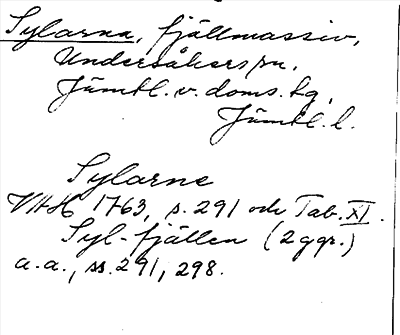 Sylarna, fjällmassiv,
Undersåkers sn.
Jämtl. v. doms. tg.
Jämtl. l.
Sylarne
VAH 1763, s. 291 och Tab. XI.
Syl-fjällen (2 ggr.)
a.a., ss. 291, 298.